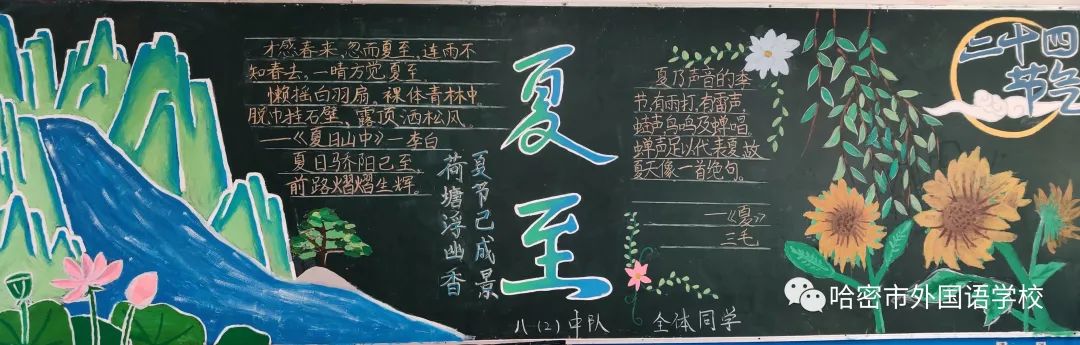 才感春来,忽而夏至,连雨不
知春去,一晴方觉夏至.
懒摇白羽扇,裸体青林中.
脱巾挂石壁,露顶洒松风.
——《夏日山中》—李白
夏日骄阳已至.
前路熠熠生辉.
夏节已成景
荷塘浮幽香
夏至
夏乃声音的季
节,有雨打,有雷声,
蛙声鸟鸣及蝉唱.
蝉声足以代表夏,故
夏天像一首绝句.
—《夏》
三毛
二十四
节气
八(2)中队 全体同学
哈密市外国语学校